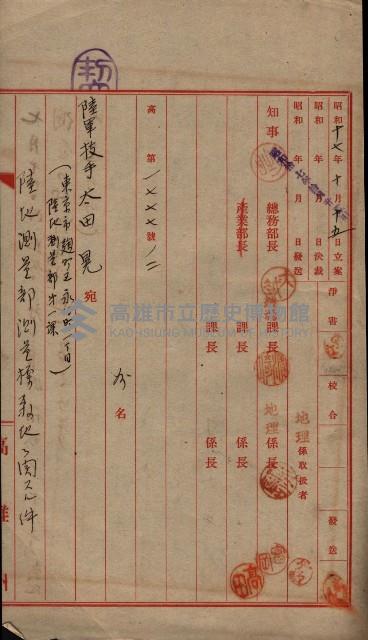 昭和十七年十月十五日立案
昭和 年 月 日決裁
昭和 年 月 日發送
淨書
校合
發送
地理係取扱者
知事
總務部長
產業部長
課長
課長
課長
地理係長
係長
係長
高第一x x x號ノ二
外 名
陸軍技手 太田晃 宛
(東京市麹町區永田町一丁目
陸地測量部第一課)
陸地測量部測量標敷地ニ関スル件
高雄州
高雄市立歷史博物館
KAOHSIUNG MUSEUM OF HISTORY